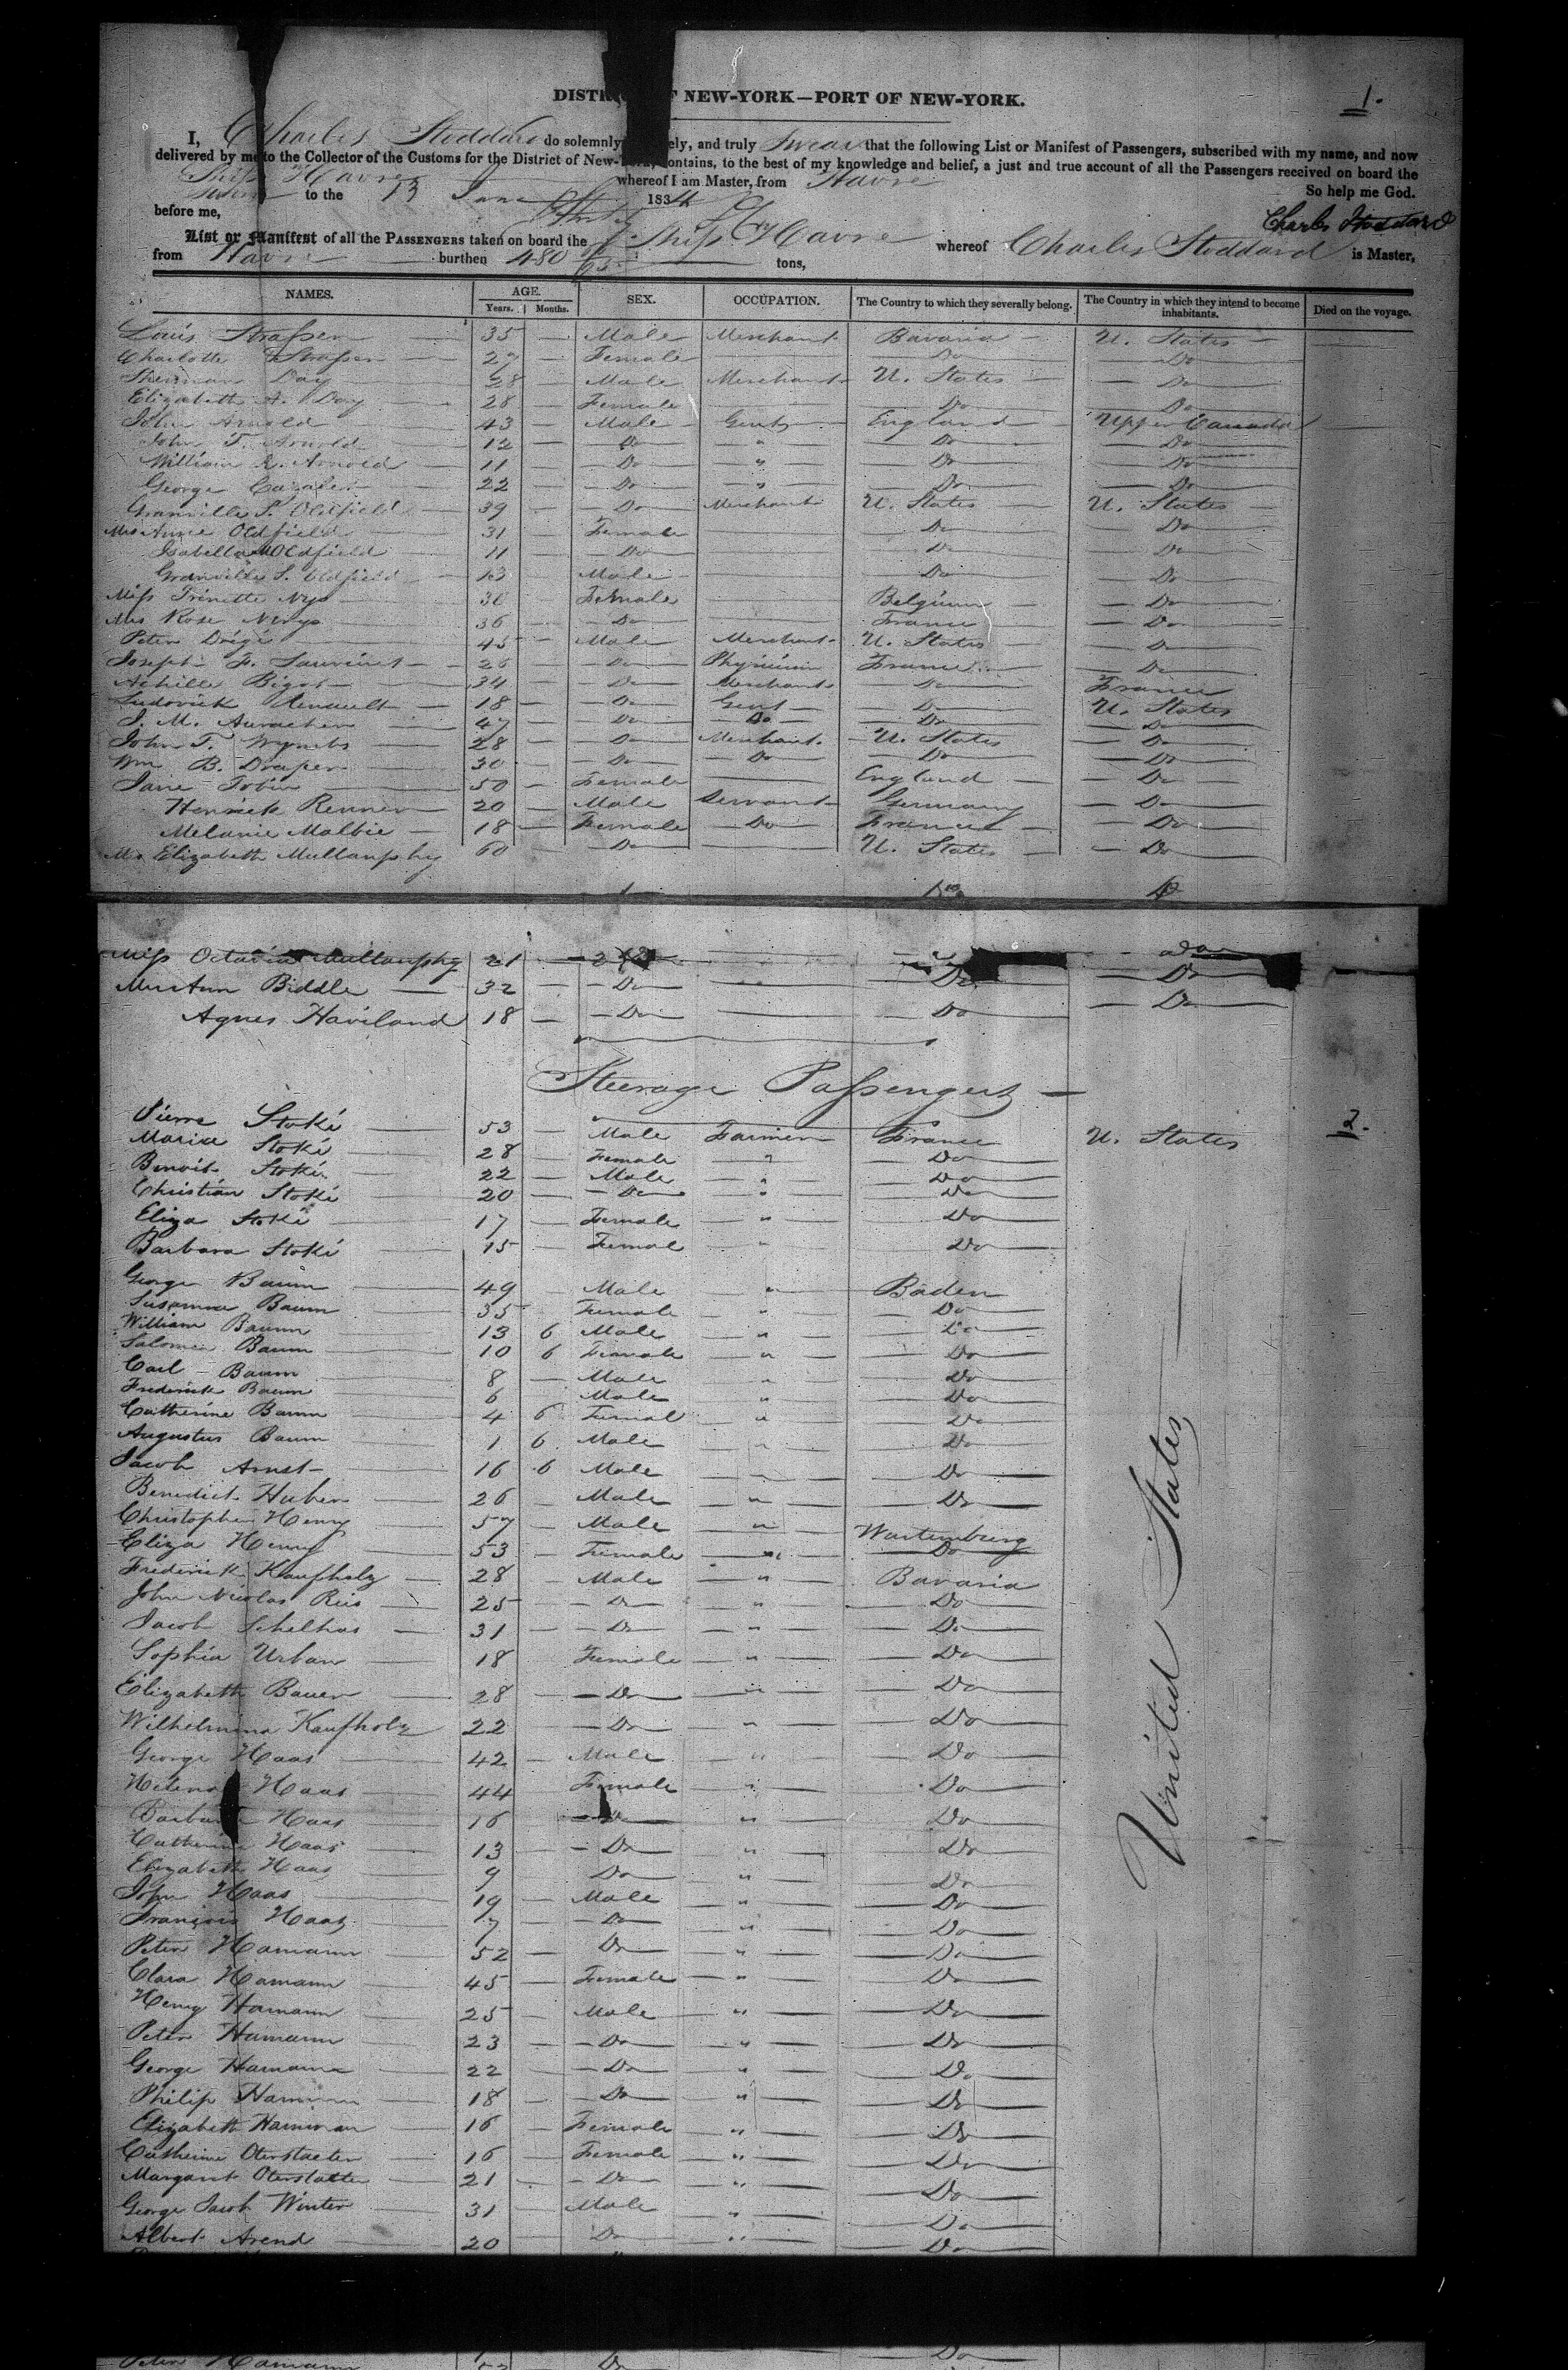 1.
DISTRICT OF NEW-YORK—PORT OF NEW-YORK.
I, Charles Stoddard do solemnly, ely, and truly Swear that the following List or Manifest of Passengers, subscribed with my name, and now
delivered by me to the Collector of the Customs for the District of New-York, contains, to the best of my knowledge and belief, a just and true account of all the Passengers received on board the
Ship Havre whereof I am Master, from Havre
Sworn to the 13 June 1834 So help me God.
before me, Charles Stoddard
List or Manifest of all the PASSENGERS taken on board the Ship Havre whereof Charles Stoddard is Master,
from Havre burthen 480 tons,
NAMES. AGE. Years. Months. SEX. OCCUPATION. The Country to which they severally belong. The Country in which they intend to become inhabitants. Died on the voyage.
Louis Strasser 35 — Male Merchant Bavaria U. States
Charlotte Strasser 27 — Female Do Do
Sherman Day 28 — Male Merchant U. States Do
Elizabeth A. Day 28 — Female Do Do
John Arnold 43 — Male Gent England Upper Canada
John T. Arnold 12 — Do " Do Do
William R. Arnold 11 — Do " Do Do
George 22 — Do " Do Do
Granville S. Oldfield 39 — Do Merchant U. States U. States
Mrs Annie Oldfield 31 — Female Do Do
Isabella M Oldfield 11 — Do Do Do
Granville S. Oldfield 13 — Male Do Do
Miss Trinette Nys — Female Belgium Do
Mrs Rose 36 — Do France Do
Peter 45 — Male Merchant U. States Do
Joseph F. — Do Physician France Do
Achille Bigot 34 — Do Merchant Do France
Ludovick Renault 18 — Do Gent Do U. States
J. M. 47 — Do Do Do Do
John T. Wymbs 28 — Do Merchant U. States Do
Wm B. Draper 30 — Do Do Do Do
Jane Tobin 50 — Female England Do
Henrick Renner 20 — Male Servant Germany Do
Melanie Malbie 18 — Female Do France Do
Mrs Elizabeth Mullanphy 60 Do U. States Do
Miss Octavia Mullanphy 21 Do
Mrs Ann Biddle 32 — Do Do Do
Agnes Haviland 18 — Do Do Do
Steerage Passengers
2.
Pierre Stoké 53 — Male Farmer France U. States
Maria Stoké 28 — Female " Do
Benoit Stoké 22 — Male " Do
Christian Stoké 20 — Do " Do
Eliza Stoké 17 — Female " Do
Barbara Stoké 15 — Femal " Do
George Baum 49 — Male " Baden
Susanna Baum 35 — Female " Do
William Baum 13 6 Male " Do
Salomea Baum 10 6 Female " Do
Carl Baum 8 — Male " Do
Frederick Baum 6 Male " Do
Catherine Baum 4 6 Femal " Do
Augustus Baum 1 6 Male " Do
Jacob Arnst 16 6 Male Do
Benedict Huber 26 — Male " Do
Christopher Henry 57 — Male " Wurtemburg
Eliza Henry 53 — Female " Do
Frederick Kaufholz 28 Male " Bavaria
John Nicolas Reis 25 — Do " Do
Jacob Schelhas 31 — Do " Do
Sophia Urban 18 Female " Do
Elizabeth Bauer 28 — Do " Do
Wilhelmina Kaufholz 22 — Do " Do
George Haas 42 — Male " Do
Helena Haas 44 — Female " Do
Barbara Haas 16 — Do " Do
Catherine Haas 13 — Do " Do
Elizabeth Haas 9 Do " Do
John Haas 19 — Male " Do
François Haas 7 — Do " Do
Peter Hamann 52 — Do " Do
Clara Hamann 45 — Female " Do
Henry Hamann 25 — Male " Do
Peter Hamann 23 — Do " Do
George Hamann 22 — Do " Do
Philip Hamann 18 — Do " Do
Elizabeth Hamman 16 — Female " Do
Catherine Oterstaeter 16 — Female " Do
Margaret Oterstaetter 21 — Do " Do
George Jacob Winter 31 — Male " Do
Albert Arend 20 Do " Do
United States
Peter Hamann 52 Do Do